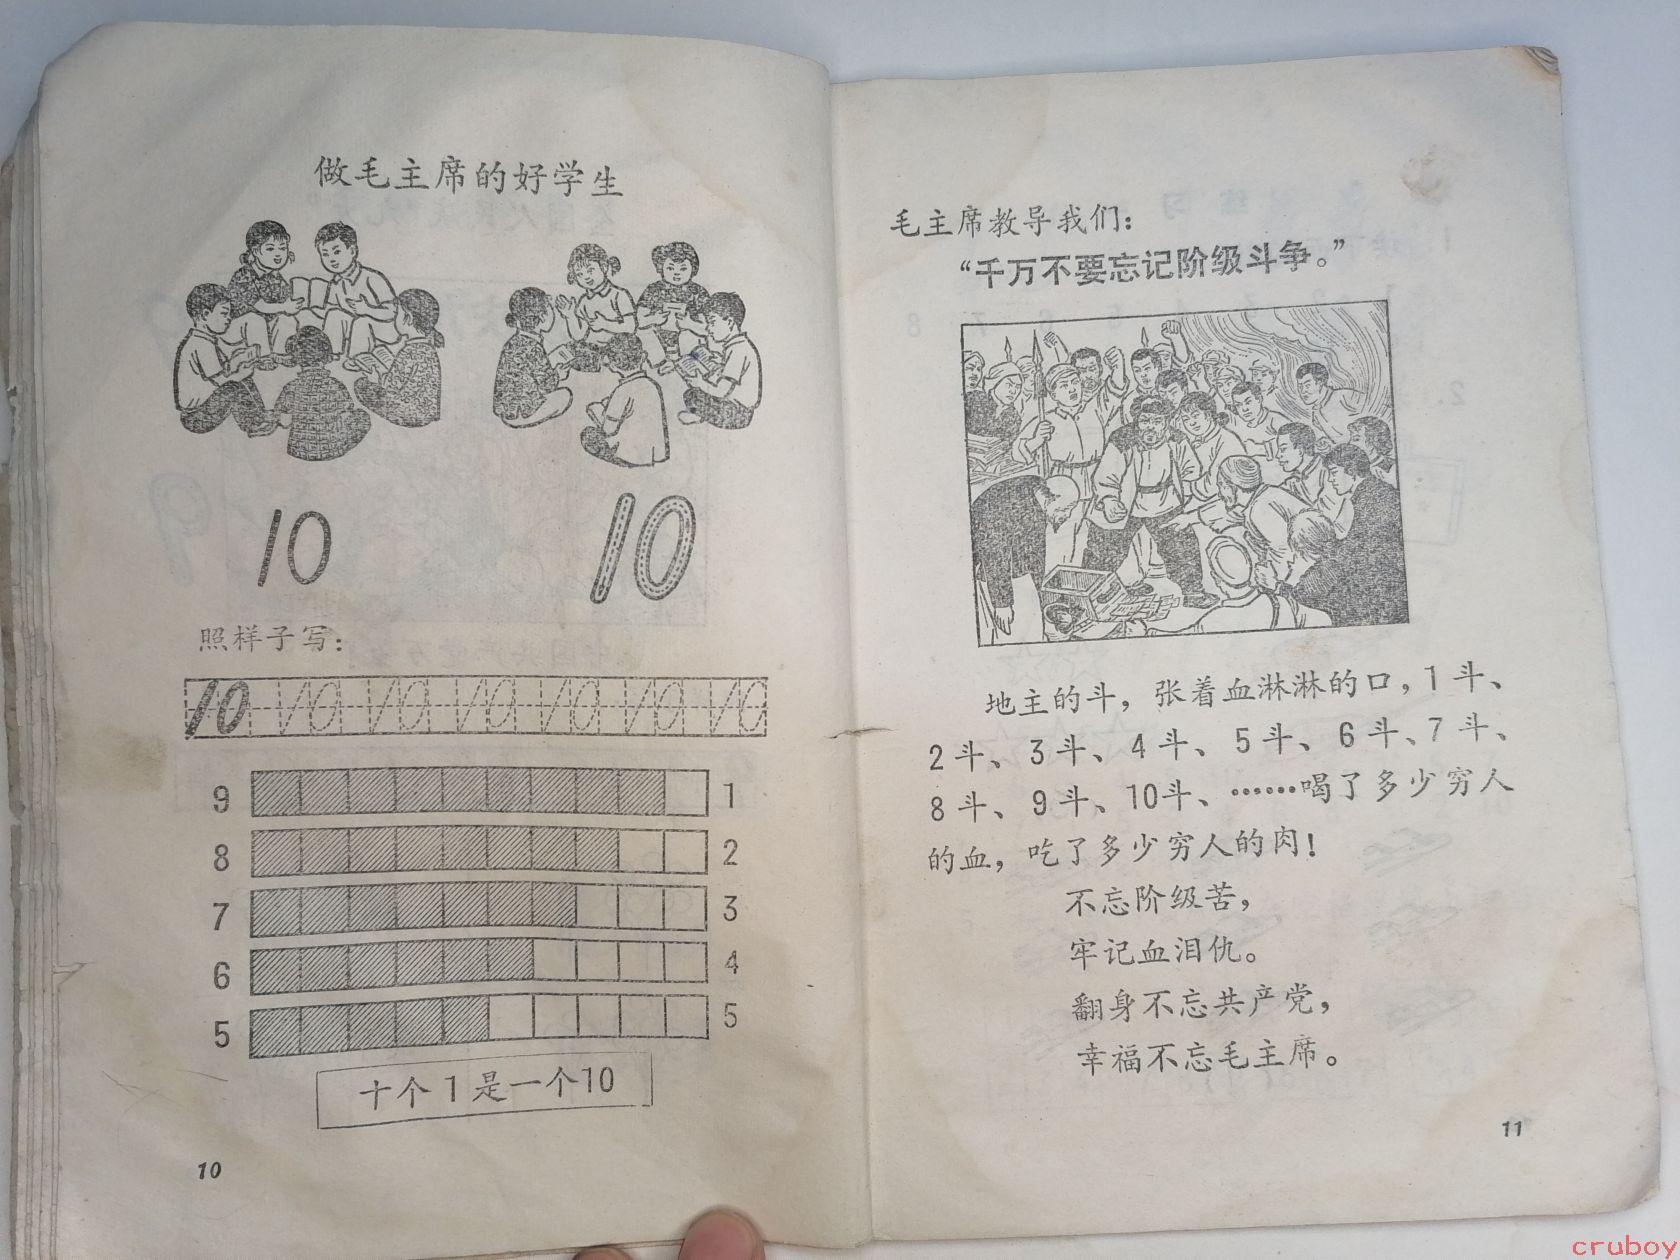 做毛主席的好学生
10 10
照样子写：
10 10 10 10 10 10 10
9 1
8 2
7 3
6 4
5 5
十个1是一个10
10
毛主席教导我们：
“千万不要忘记阶级斗争。”
地主的斗，张着血淋淋的口，1斗、
2斗、3斗、4斗、5斗、6斗、7斗、
8斗、9斗、10斗、……喝了多少穷人
的血，吃了多少穷人的肉！
不忘阶级苦，
牢记血泪仇。
翻身不忘共产党，
幸福不忘毛主席。
11
cruboy